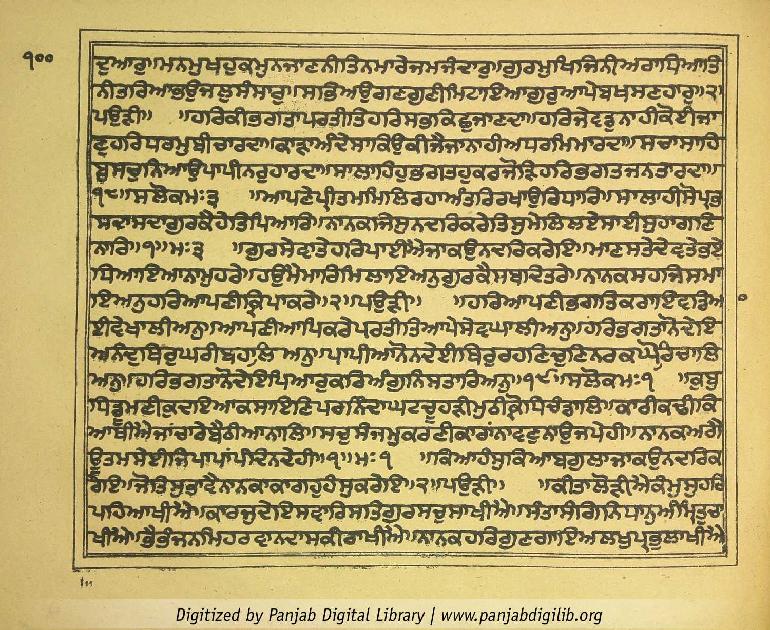 ੧੦੦
ਦੁਆਰੁ॥ਮਨਮੁਖਹੁਕਮੁਨਜਾਣਨੀਤਿਨਮਾਰੇਜਮਜੰਦਾਰੁ॥ਗੁਰਮੁਖਿਜਿਨੀਅਰਾਧਿਆਤਿ
ਨੀਤਰਿਆਭਉਜਲੁਸੰਸਾਰੁ॥ਸਭਿਅਉਗਣਗੁਣੀਮਿਟਾਇਆਗੁਰੁਆਪੇਬਖਸਣਹਾਰੁ॥੨॥
ਪਉੜੀ॥ ਹਰਿਕੀਭਗਤਾਪਰਤੀਤਿਹਰਿਸਭਕਿਛੁਜਾਣਦਾ॥ਹਰਿਜੇਵਡੁਨਾਹੀਕੋਈਜਾ
ਣੁਹਰਿਧਰਮੁਬੀਚਾਰਦਾ॥ਕਾੜਾਅੰਦੇਸਾਕਿਉਕੀਜੈਜਾਨਾਹੀਅਧਰਮਿਮਾਰਦਾ॥ਸਚਾਸਾਹਿ
ਬੁਸਚੁਨਿਆਉਪਾਪੀਨਰੁਹਾਰਦਾ॥ਸਾਲਾਹਿਹੁਭਗਤਹੁਕਰਜੋੜਿਹਰਿਭਗਤਜਨਤਾਰਦਾ॥
੧੮॥ਸਲੋਕਮਃ੩ ॥ਆਪਣੇਪ੍ਰੀਤਮਮਿਲਿਰਹਾਅੰਤਰਿਰਖਾਉਰਿਧਾਰਿ॥ਸਾਲਾਹੀਸੋਪ੍ਰਭ
ਸਦਾਸਦਾਗੁਰਕੈਹੇਤਿਪਿਆਰਿ॥ਨਾਨਕਜਿਸੁਨਦਰਿਕਰੇਤਿਸੁਮੇਲਿਲਏਸਾਈਸੁਹਾਗਣਿ
ਨਾਰਿ॥੧॥ਮਃ੩ ॥ਗੁਰਸੇਵਾਤੇਹਰਿਪਾਈਐਜਾਕਉਨਦਰਿਕਰੇਇ॥ਮਾਣਸਤੇਦੇਵਤੇਭਏ
ਧਿਆਇਆਨਾਮੁਹਰੇ॥ਹਉਮੈਮਾਰਿਮਿਲਾਇਅਨੁਗੁਰਕੈਸਬਦਿਤਰੇ॥ਨਾਨਕਸਹਜਿਸਮਾ
ਇਅਨੁਹਰਿਆਪਣੀਕ੍ਰਿਪਾਕਰੇ॥੨॥ਪਉੜੀ॥ ॥ਹਰਿਆਪਣੀਭਗਤਿਕਰਾਇਵਡਿਆ
ਈਵੇਖਾਲੀਅਨੁ॥ਆਪਣੀਆਪਿਕਰੇਪਰਤੀਤਿਆਪੇਸੇਵਘਾਲੀਅਨੁ॥ਹਰਿਭਗਤਾਨੋਦੇਇ
ਅਨੰਦੁਥਿਰੁਘਰੀਬਹਾਲਿਅਨੁ॥ਪਾਪੀਆਨੋਨਦੇਈਥਿਰੁਰਹਣਿਚੁਣਿਨਰਕਘੋਰਿਚਾਲਿ
ਅਨੁ॥ਹਰਿਭਗਤਾਨੋਦੇਇਪਿਆਰੁਕਰਿਅੰਗੁਨਿਸਤਾਰਿਅਨੁ॥੧੯॥ਸਲੋਕਮਃ੧ ॥ਕੁਬੁ
ਧਿਡੂਮਣੀਕੁਦਇਆਕਸਾਇਣਿਪਰਨਿੰਦਾਘਟਚੂਹੜੀਮੁਠੀਕ੍ਰੋਧਿਚੰਡਾਲਿ॥ਕਾਰੀਕਢੀਕਿ
ਆਥੀਐਜਾਂਚਾਰੇਬੈਠੀਆਨਾਲਿ॥ਸਚੁਸੰਜਮੁਕਰਣੀਕਾਰਾਂਨਾਵਣੁਨਾਉਜਪੇਹੀ॥ਨਾਨਕਅਗੈ
ਊਤਮਸੇਈਜਿਪਾਪਾਂਪੰਦਿਨਦੇਹੀ॥੧॥ਮਃ੧ ॥ਕਿਆਹੰਸੁਕਿਆਬਗੁਲਾਜਾਕਉਨਦਰਿਕ
ਰੇਇ॥ਜੇਤਿਸੁਭਾਵੈਨਾਨਕਾਕਾਗਹੁਹੰਸੁਕਰੇਇ॥੨॥ਪਉੜੀ॥ ॥ਕੀਤਾਲੋੜੀਐਕੰਮੁਸੁਹਰਿ
ਪਹਿਆਖੀਐ॥ਕਾਰਜੁਦੇਇਸਵਾਰਿਸਤਿਗੁਰਸਚੁਸਾਖੀਐ॥ਸੰਤਾਸੰਗਿਨਿਧਾਨੁਅੰਮ੍ਰਿਤੁਚਾ
ਖੀਐ॥ਭੈਭੰਜਨਮਿਹਰਵਾਨਦਾਸਕੀਰਾਖੀਐ॥ਨਾਨਕਹਰਿਗੁਣਗਾਇਅਲਖੁਪ੍ਰਭੁਲਾਖੀਐ
Digitized by Panjab Digital Library | www.panjabdigilib.org